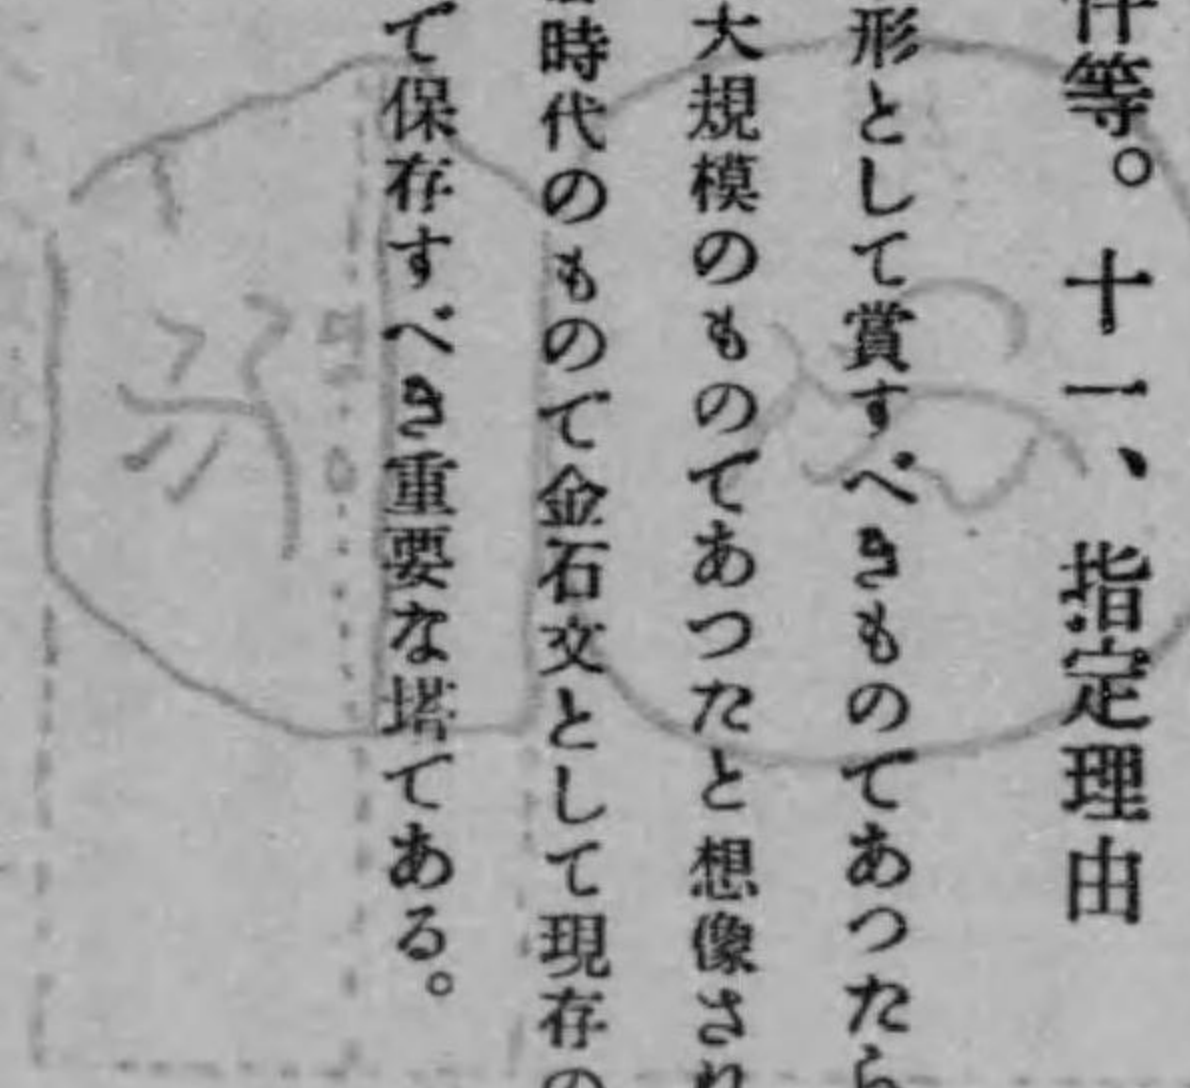 件等。十一、指定理由
形として賞すべきものてあつたら
大規模のものてあつたと想像され
時代のものて金石文として現存の
て保存すべき重要な塔てある。